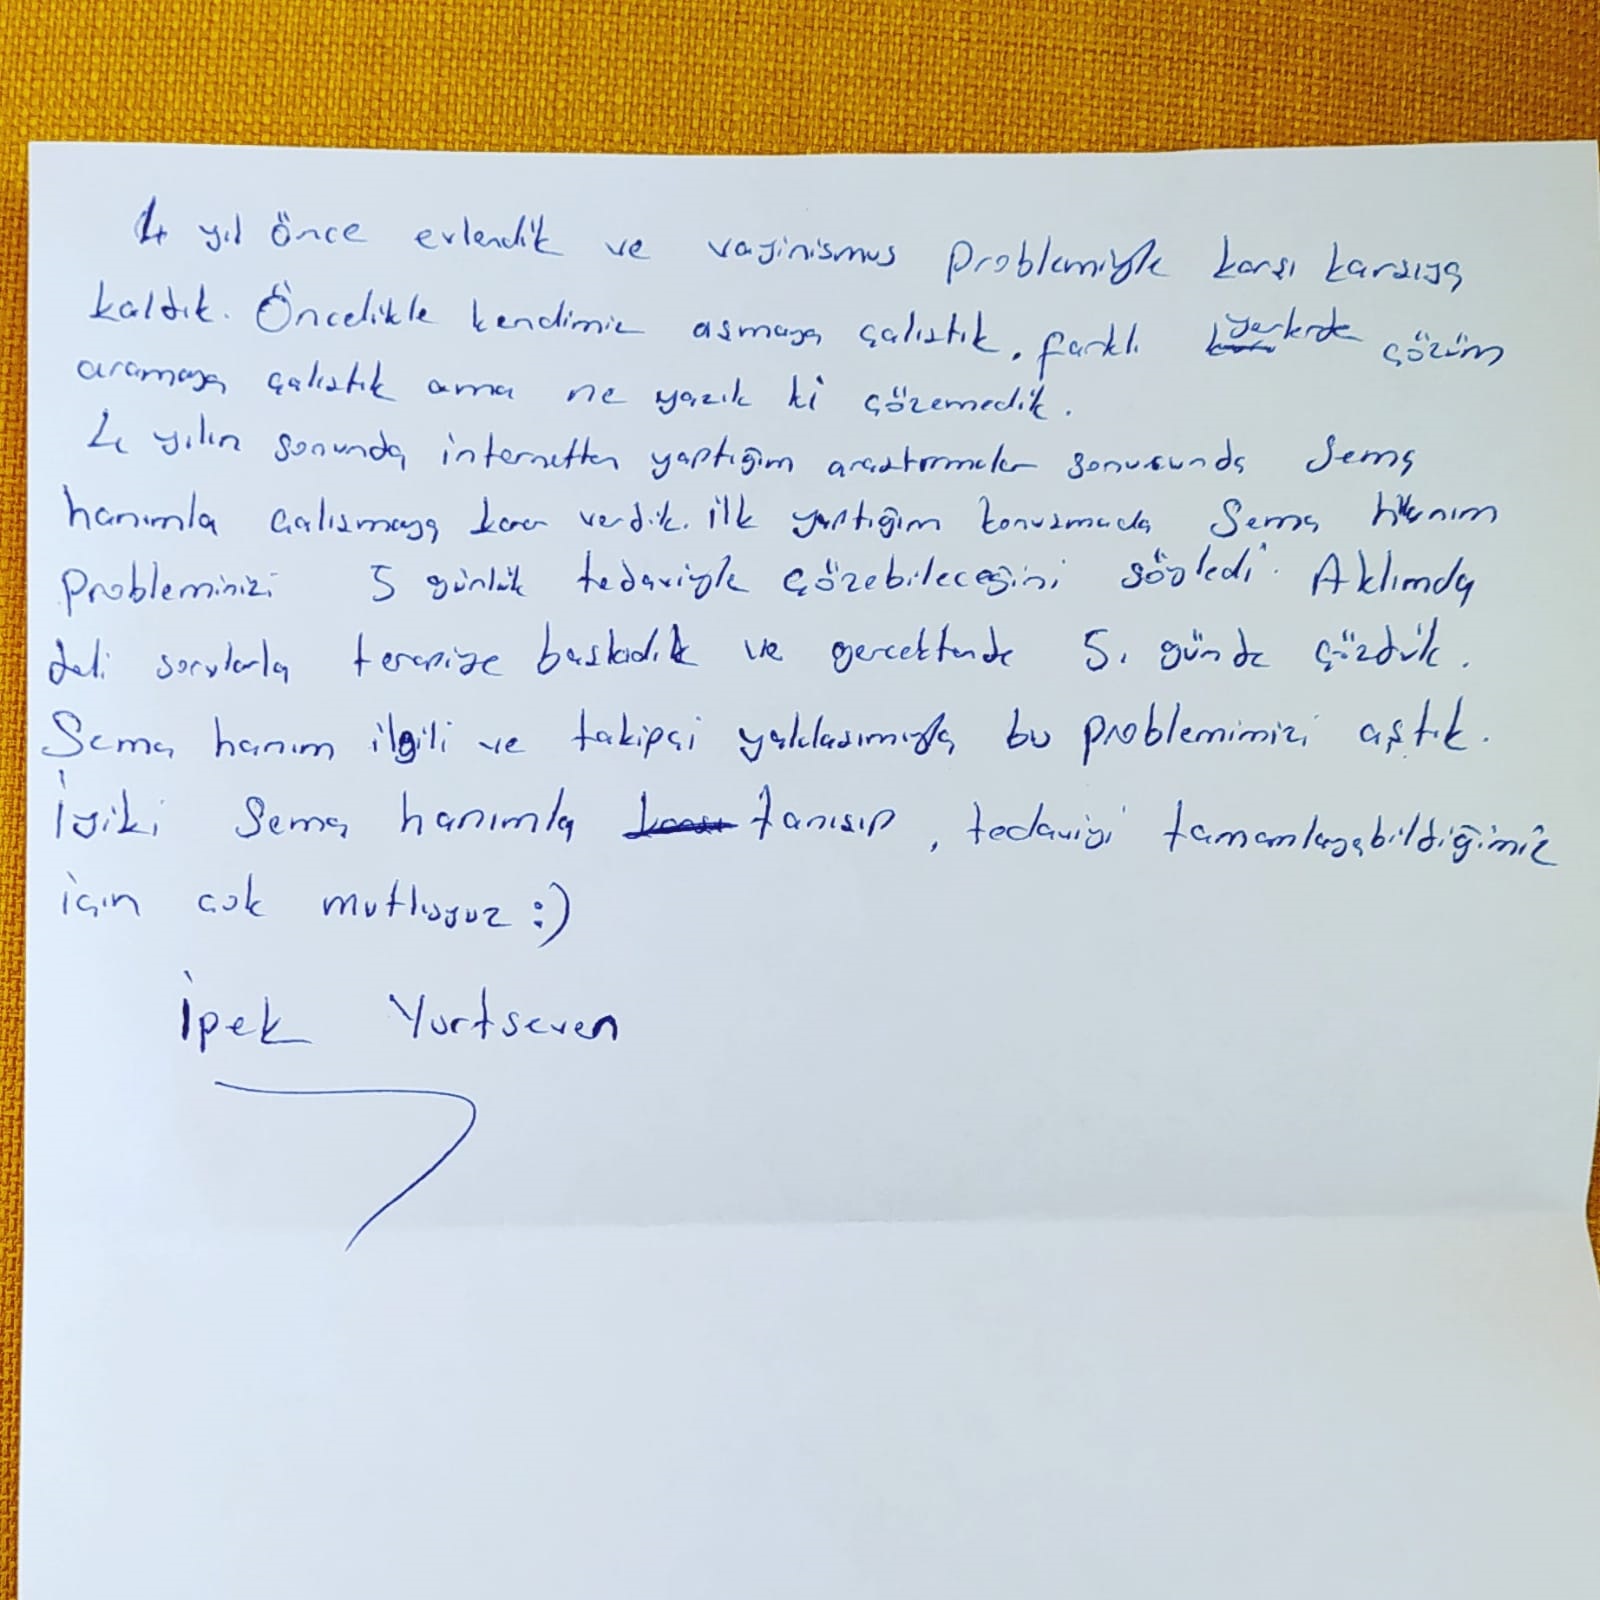 4 yıl önce evlendik ve vajinismus problemiyle karşı karşıya
kaldık. Öncelikle kendimiz aşmaya çalıştık, farklı yerlerde çözüm
aramaya çalıştık ama ne yazık ki çözemedik.
4 yılın sonunda internetten yaptığım araştırmalar sonucunda Sema
hanımla çalışmaya karar verdik. İlk yaptığım konuşmada Sema hanım
probleminizi 5 günlük tedaviyle çözebileceğini söyledi. Aklımda
deli sorularla terapiye başladık ve gerçektende 5. günde çözdük.
Sema hanım ilgili ve takipçi yaklaşımıyla bu problemimizi aştık.
İyiki Sema hanımla tanışıp, tedaviyi tamamlayabildiğimiz
için çok mutluyuz :)
İpek Yurtseven